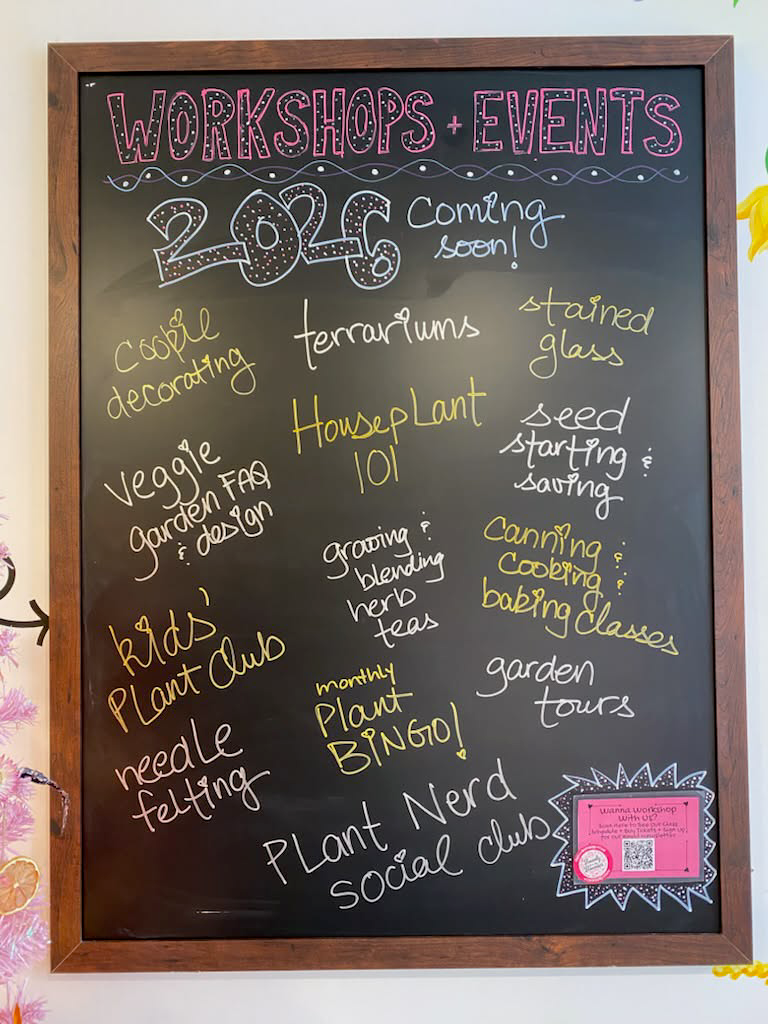 WORKSHOPS + EVENTS
2026 Coming
soon!
Cookie
decorating
terrariums
stained
glass
HousepLant
101
seed
starting &
saving
Veggie
garden FAQ
& design
growing &
blending
herb
teas
Canning &
Cooking &
baking Classes
kids'
PLant Club
monthly
PLant
BINGO!
garden
tours
needle
felting
PLant Nerd
social club
Wanna Workshop
With Us?
Scan Here to See Our Class
Schedule + Buy Tickets + Sign Up
for our email newsletter